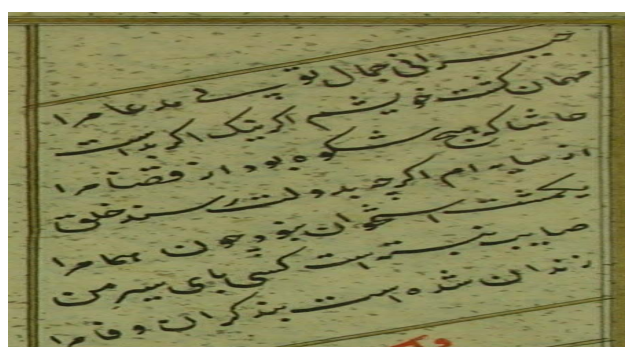 حیرانی جمال تو بی مدعا مرا
مهمان کشت خویشم اکر نیک اکر بد است
حاشا که هیچ شکوه بود از قضا مرا
از سایه ام اکرچه بدولت رسند خلق
یکمشت استخوان بود چون هما مرا
صایب نبسته است کسی پای سیر من
زندان شده است بند کران وفا مرا